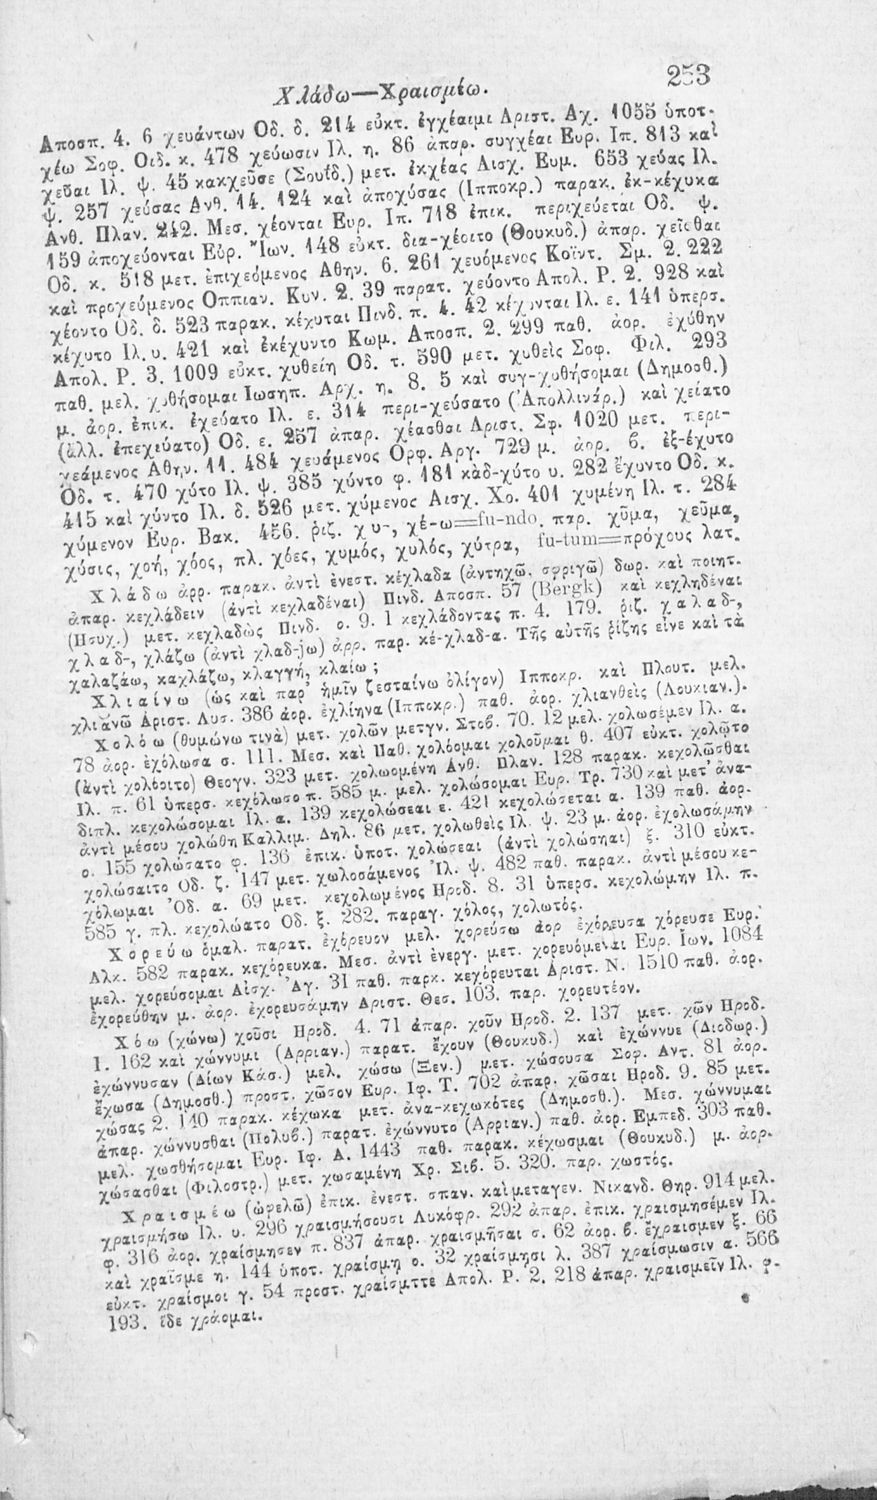 253
Χλάδω—Χραισμέω.
Αποσπ. 4. 6 χευάντων Οδ. δ. 214 εὐκτ. ἐγχέαιμι Αριστ. Αχ. 1055 ὑποτ.
χέω Σοφ. Οιδ. κ. 478 χεύωσιν Ιλ. η. 86 ἀπαρ. συγχέαι Ευρ. Ιπ. 813 καὶ
χεῦαι Ιλ. ψ. 45 κακχεῦσε (Σουΐδ.) μετ. ἐκχέας Αισχ. Ευμ. 653 χεύας Ιλ.
ψ. 257 χεύσας Ανθ. 14. 124 καὶ ἀποχύσας (Ιπποκρ.) παρακ. ἐκ-κέχυκα
Ανθ. Πλαν. 242. Μεσ. χέονται Ευρ. Ιπ. 718 ἐπικ. περιχεύεται Οδ. ψ.
159 ἀποχεύονται Εὐρ. Ἴων. 148 εὐκτ. δια-χέοιτο (Θουκυδ.) ἀπαρ. χεῖσθαι
Οδ. κ. 518 μετ. ἐπιχεόμενος Αθην. 6. 261 χευόμενος Κοΐντ. Σμ. 2. 222
καὶ προχεύμενος Οππιαν. Κυν. 2. 39 παρατ. χεύοντο Απολ. Ρ. 2. 928 καὶ
χέοντο Οδ. δ. 523 παρακ. κέχυται Πινδ. π. 4. 42 κέχυνται Ιλ. ε. 141 ὑπερσ.
κέχυτο Ιλ. υ. 421 καὶ ἐκέχυντο Κωμ. Αποσπ. 2. 299 παθ. ἀορ. ἐχύθην
Απολ. Ρ. 3. 1009 εὐκτ. χυθείη Οδ. τ. 590 μετ. χυθεὶς Σοφ. Φιλ. 293
παθ. μελ. χυθήσομαι Ιωσηπ. Αρχ. η. 8. 5 καὶ συγ-χυθήσομαι (Δημοσθ.)
μ. ἀορ. ἐπικ. ἐχεύατο Ιλ. ε. 314 περι-χεύσατο (Ἀπολλινάρ.) καὶ χείατο
(ἄλλ. ἐπεχεύατο) Οδ. ε. 257 ἀπαρ. χέασθαι Αριστ. Σφ. 1020 μετ. περι-
χεάμενος Αθην. 11. 484 χευάμενος Ορφ. Αργ. 729 μ. ἀορ. β. ἐξ-έχυτο
Οδ. τ. 470 χύτο Ιλ. ψ. 385 χύντο φ. 181 κὰδ-χύτο υ. 282 ἔχυντο Οδ. κ.
415 καὶ χύντο Ιλ. δ. 526 μετ. χύμενος Αισχ. Χο. 401 χυμένη Ιλ. τ. 284
χύμενον Ευρ. Βακ. 456. ῥιζ. χυ-, χέ-ω=fu-ndo. παρ. χῦμα, χεῦμα,
χύσις, χοή, χόος, πλ. χόες, χυμός, χυλός, χύτρα, fu-tum=πρόχους λατ.
Χλάδω ἀρρ. παρακ. ἀντὶ ἐνεστ. κέχλαδα (ἀντηχῶ, σφριγῶ) δωρ. καὶ ποιητ.
ἀπαρ. κεχλάδειν (ἀντὶ κεχλαδέναι) Πινδ. Αποσπ. 57 (Bergk) καὶ κεχληδέναι
(Ησυχ.) μετ. κεχλαδὼς Πινδ. ο. 9. 1 κεχλάδοντας π. 4. 179. ῥιζ. χαλαδ-,
χλαδ-, χλάζω (ἀντὶ χλαδ-jω) ἀρρ. παρ. κέ-χλαδ-α. Τῆς αὐτῆς ῥίζης εἶνε καὶ τὰ
χαλαζάω, καχλάζω, κλαγγή, κλαίω;
Χλιαίνω (ὡς καὶ παρ᾽ ἡμῖν ζεσταίνω ὀλίγον) Ιπποκρ. καὶ Πλουτ. μελ.
χλιανῶ Αριστ. Λυσ. 386 ἀορ. ἐχλίηνα (Ιπποκρ.) παθ. ἀορ. χλιανθεὶς (Λουκιαν.).
Χολόω (θυμώνω τινὰ) μετ. χολῶν μετγν. Στοβ. 70. 12 μελ. χολωσέμεν Ιλ. α.
78 ἀορ. ἐχόλωσα σ. 111. Μεσ. καὶ Παθ. χολόομαι χολοῦμαι θ. 407 εὐκτ. χολῷτο
(ἀντὶ χολόοιτο) Θεογν. 323 μετ. χολωομένη Ανθ. Πλαν. 128 παρακ. κεχολῶσθαι
Ιλ. π. 61 ὑπερσ. κεχόλωσο π. 585 μ. μελ. χολώσομαι Ευρ. Τρ. 730 καὶ μετ᾽ ἀνα-
διπλ. κεχολώσομαι Ιλ. α. 139 κεχολώσεαι ε. 421 κεχολώσεται α. 139 παθ. ἀορ.
ἀντὶ μέσου χολώθη Καλλιμ. Δηλ. 86 μετ. χολωθεὶς Ιλ. ψ. 23 μ. ἀορ. ἐχολωσάμην
ο. 155 χολώσατο φ. 136 ἐπικ. ὑποτ. χολώσεαι (ἀντὶ χολώσηαι) ξ. 310 εὐκτ.
χολώσαιτο Οδ. ζ. 147 μετ. χωλοσάμενος Ἰλ. ψ. 482 παθ. παρακ. ἀντὶ μέσου κε-
χόλωμαι Ὀδ. α. 69 μετ. κεχολωμένος Ηροδ. 8. 31 ὑπερσ. κεχολώμην Ιλ. π.
585 γ. πλ. κεχολώατο Οδ. ξ. 282. παραγ. χόλος, χολωτός.
Χορεύω ὁμαλ. παρατ. ἐχόρευον μελ. χορεύσω ἀορ ἐχόρευσα χόρευσε Ευρ.
Αλκ. 582 παρακ. κεχόρευκα. Μεσ. ἀντὶ ἐνεργ. μετ. χορευόμεναι Ευρ. Ἴων. 1084
μελ. χορεύσομαι Αἰσχ. Ἀγ. 31 παθ. παρκ. κεχόρευται Αριστ. Ν. 1510 παθ. ἀορ.
ἐχορεύθην μ. ἀορ. ἐχορευσάμην Αριστ. Θεσ. 103. παρ. χορευτέον.
Χόω (χώνω) χοῦσι Ηροδ. 4. 71 ἀπαρ. χοῦν Ηροδ. 2. 137 μετ. χῶν Ηροδ.
1. 162 καὶ χώννυμι (Αρριαν.) παρατ. ἔχουν (Θουκυδ.) καὶ ἐχώννυε (Διοδωρ.)
ἐχώννυσαν (Δίων Κάσ.) μελ. χώσω (Ξεν.) μετ. χώσουσα Σοφ. Αντ. 81 ἀορ.
ἔχωσα (Δημοσθ.) προστ. χῶσον Ευρ. Ιφ. Τ. 702 ἀπαρ. χῶσαι Ηροδ. 9. 85 μετ.
χώσας 2. 140 παρακ. κέχωκα μετ. ἀνα-κεχωκότες (Δημοσθ.). Μεσ. χώννυμαι
ἀπαρ. χώννυσθαι (Πολυβ.) παρατ. ἐχώννυτο (Αρριαν.) παθ. ἀορ. Εμπεδ. 303 παθ.
μελ. χωσθήσομαι Ευρ. Ιφ. Α. 1443 παθ. παρακ. κέχωσμαι (Θουκυδ.) μ. ἀορ.
χώσασθαι (Φιλοστρ.) μετ. χωσαμένη Χρ. Σιβ. 5. 320. παρ. χωστός.
Χραισμέω (ὠφελῶ) ἐπικ. ἐνεστ. σπαν. καὶ μεταγεν. Νικανδ. Θηρ. 914 μελ.
χραισμήσω Ιλ. υ. 296 χραισμήσουσι Λυκόφρ. 292 ἀπαρ. ἐπικ. χραισμησέμεν Ιλ.
φ. 316 ἀορ. χραίσμησεν π. 837 ἀπαρ. χραισμῆσαι σ. 62 ἀορ. β. ἔχραισμεν ξ. 66
καὶ χραῖσμε η. 144 ὑποτ. χραίσμη ο. 32 χραίσμησι λ. 387 χραίσμωσιν α. 566
εὐκτ. χραίσμοι γ. 54 προστ. χραίσμττε Απολ. Ρ. 2. 218 ἀπαρ. χραισμεῖν Ιλ. φ.
193. ἴδε χράομαι.